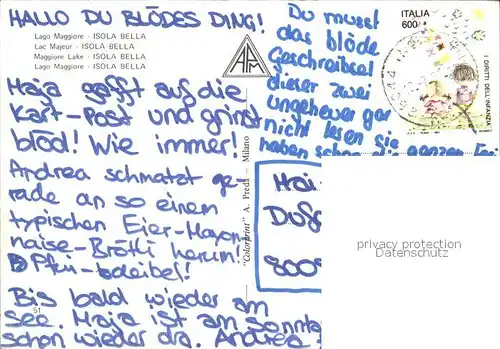 HALLO DU BLÖDES DING!
Lago Maggiore - ISOLA BELLA
Lac Majeur - ISOLA BELLA
Maggiore Lake - ISOLA BELLA
Lago Maggiore - ISOLA BELLA
Maja gafft auf die
Kart-Post und grinst
blöd! Wie immer!
Andrea schmatzt ge-
rade an so einem
typischen Eier-Mayon-
naise-Brötli herum!
Pfui-deibel!
Bis bald wieder am
See. Maja ist am Sonntag
schon wieder dra. Andrea
51
"Colorprint" A. Preda - Milano
Du musst
das blöde
Geschreibsel
dieser zwei
ungeheuer gar
nicht lesen sie
haben schon die ganzen
ITALIA
600
I DIRITTI DELL'INFANZIA
Maj
800
privacy protection
Datenschutz